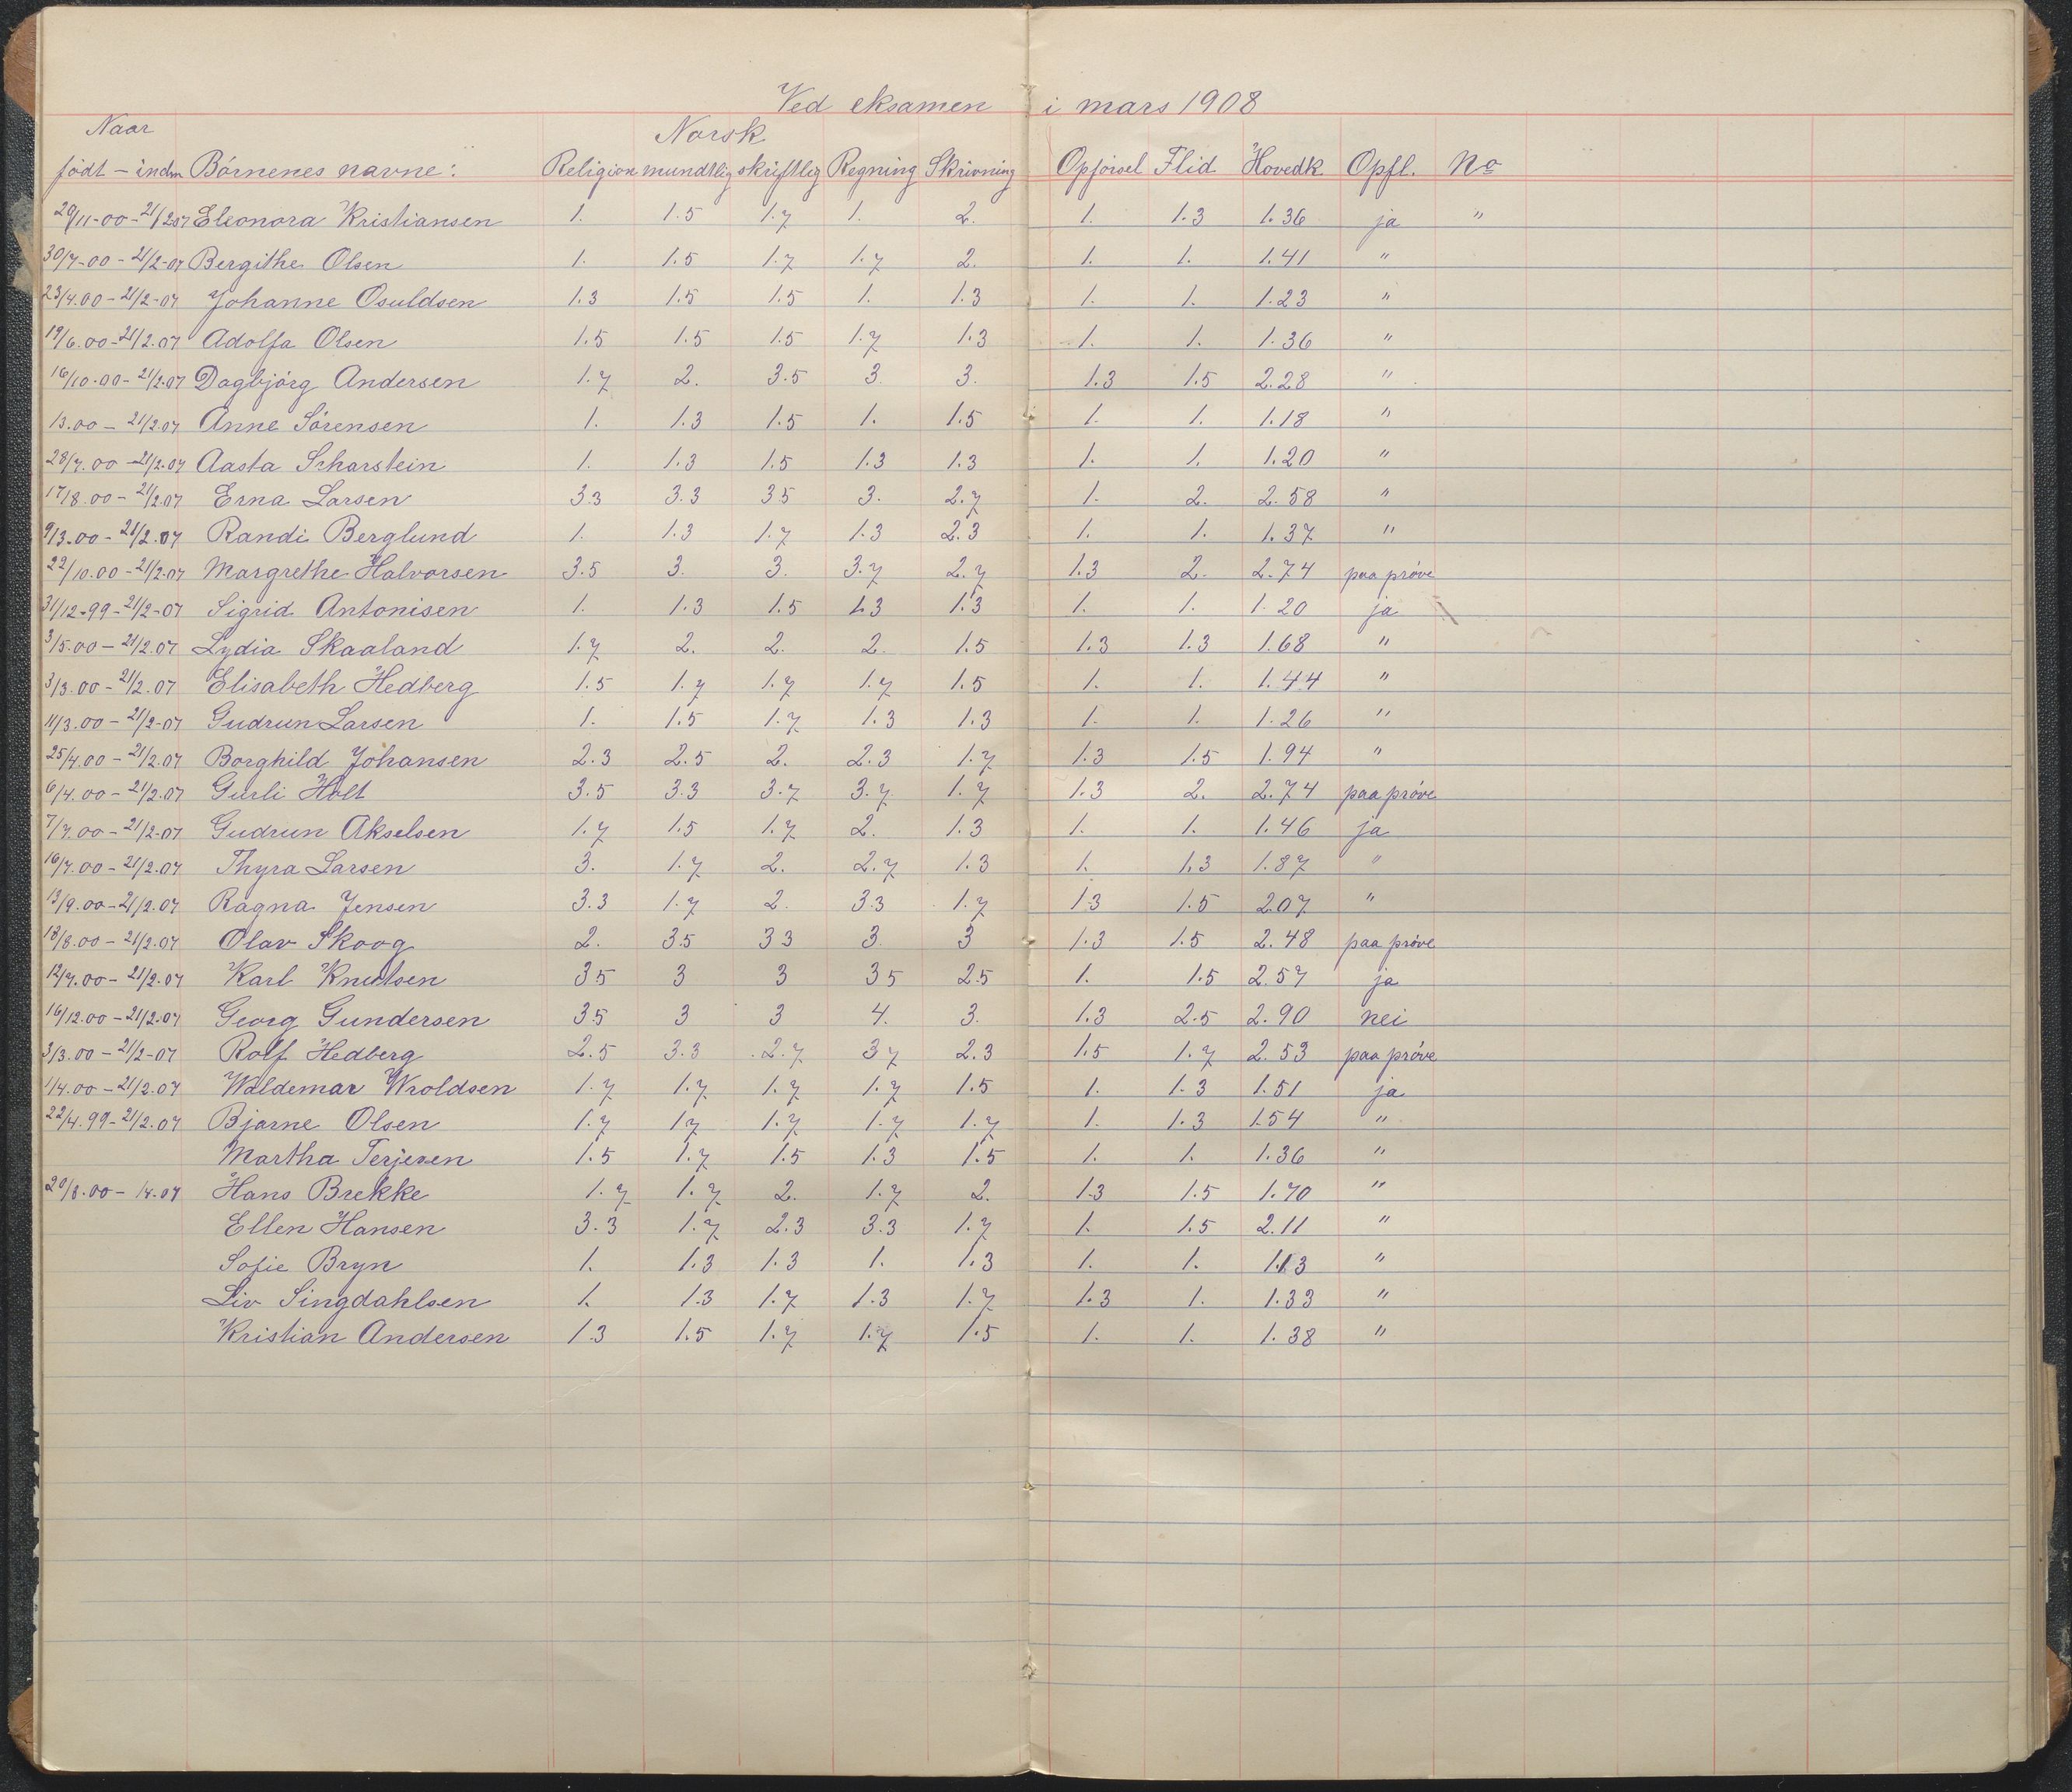 Ved eksamen i mars 1908
Naar Norsk
født - indm Børnenes navne: Religion mundtlig skriftlig Regning Skrivning Opførsel Flid Hovedk. Opfl. No
29/11-00-21/2 07 Eleonora Kristiansen 1. 1.5 1.7 1. 2. 1. 1.3 1.36 ja "
30/7-00-21/2-07 Bergithe Olsen 1. 1.5 1.7 1.7 2. 1. 1. 1.41 "
23/4.00-21/2-07 Johanne Osuldsen 1.3 1.5 1.5 1. 1.3 1. 1. 1.23 "
19/6.00-21/2.07 Adolfa Olsen 1.5 1.5 1.5 1.7 1.3 1. 1. 1.36 "
16/10.00-21/2.07 Dagbjørg Andersen 1.7 2. 3.5 3. 3. 1.3 1.5 2.28 "
13.00-21/2.07 Anne Sørensen 1. 1.3 1.5 1. 1.5 1. 1. 1.18 "
28/7.00-21/2.07 Aasta Scharstein 1. 1.3 1.5 1.3 1.3 1. 1. 1.20 "
17/8.00-21/2.07 Erna Larsen 3.3 3.3 3 5 3. 2.7 1. 2. 2.58 "
9/3.00-21/2.07 Randi Berglund 1. 1.3 1.7 1.3 2.3 1. 1. 1.37 "
22/10.00-21/2.07 Margrethe Halvorsen 3.5 3. 3. 3.7 2.7 1.3 2. 2.74 paa prøve
31/12-99-21/2-07 Sigrid Antonisen 1. 1.3 1.5 1.3 1.3 1. 1. 1.20 ja
3/5.00-21/2.07 Lydia Skaaland 1.7 2. 2. 2. 1.5 1.3 1.3 1.68 "
3/3.00-21/2.07 Elisabeth Hedberg 1.5 1.7 1.7 1.7 1.5 1. 1. 1.44 "
11/3.00-21/2-07 Gudrun Larsen 1. 1.5 1.7 1.3 1.3 1. 1. 1.26 "
25/4.00-21/2.07 Borghild Johansen 2.3 2.5 2. 2.3 1.7 1.3 1.5 1.94 "
6/4.00-21/2.07 Gurli Holt 3.5 3.3 3.7 3.7 1.7 1.3 2. 2.74 paa prøve
7/7.00-21/2-07 Gudrun Akselsen 1.7 1.5 1.7 2. 1.3 1. 1. 1.46 ja
16/7.00-21/2.07 Thyra Larsen 3. 1.7 2. 2.7 1.3 1. 1.3 1.87 "
13/9.00-21/2.07 Ragna Jensen 3.3 1.7 2. 3.3 1.7 1.3 1.5 2.07 "
18/8.00-21/2.07 Olav Skoog 2. 3.5 3 3 3. 3 1.3 1.5 2.48 paa prøve
12/7.00-21/2.07 Karl Knutsen 3 5 3 3 3 5 2.5 1. 1.5 2.57 ja
16/12.00-21/2.07 Georg Gundersen 3.5 3 3 4. 3. 1.3 2.5 2.90 nei
3/3.00-21/2-07 Rolf Hedberg 2.5 3.3 2.7 3 7 2.3 1.5 1.7 2.53 paa prøve
1/4.00-21/2.07 Waldemar Wroldsen 1.7 1.7 1.7 1.7 1.5 1. 1.3 1.51 ja
22/4.99-21/2.07 Bjarne Olsen 1.7 1 7 1.7 1.7 1.7 1. 1.3 1.54 "
Martha Terjesen 1.5 1.7 1.5 1.3 1.5 1. 1. 1.36 "
20/8.00- 14.07 Hans Brekke 1.7 1.7 2. 1.7 2. 1.3 1.5 1.70 "
Ellen Hansen 3.3 1.7 2.3 3.3 1.7 1. 1.5 2.11 "
Sofie Bryn 1. 1.3 1.3 1. 1.3 1. 1. 1.13 "
Liv Singdahlsen 1. 1.3 1.7 1.3 1.7 1.3 1. 1.33 "
Kristian Andersen 1.3 1.5 1.7 1.7 1.5 1. 1. 1.38 "